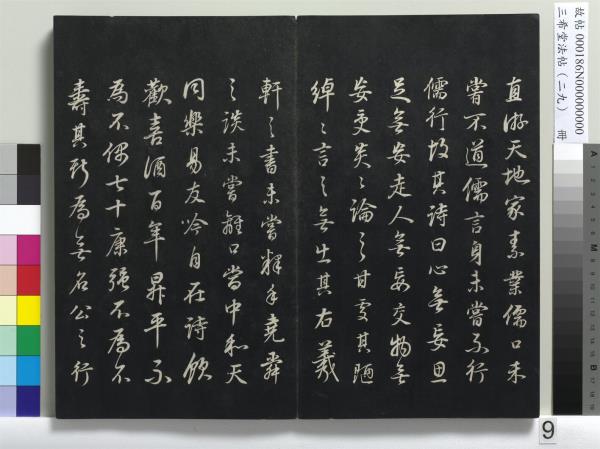 直游天地家素業儒口未
嘗不道儒言身未嘗不行
儒行故其詩曰心無妄思
足無妄走人無妄交物無
妄受炎〻論之甘處其陋
綽〻言之無出其右羲
軒之書未嘗釋手堯舜
之談未嘗離口當中和天
同樂易友吟自在詩飲
歡喜酒百年昇平不
為不偶七十康強不為不
壽其斯為無名公之行
故帖 000186N000000000
三希堂法帖(二九) 冊
9